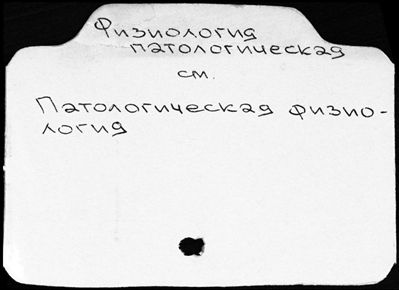 Физиология
патологическая
см.
Патологическая физио-
логия